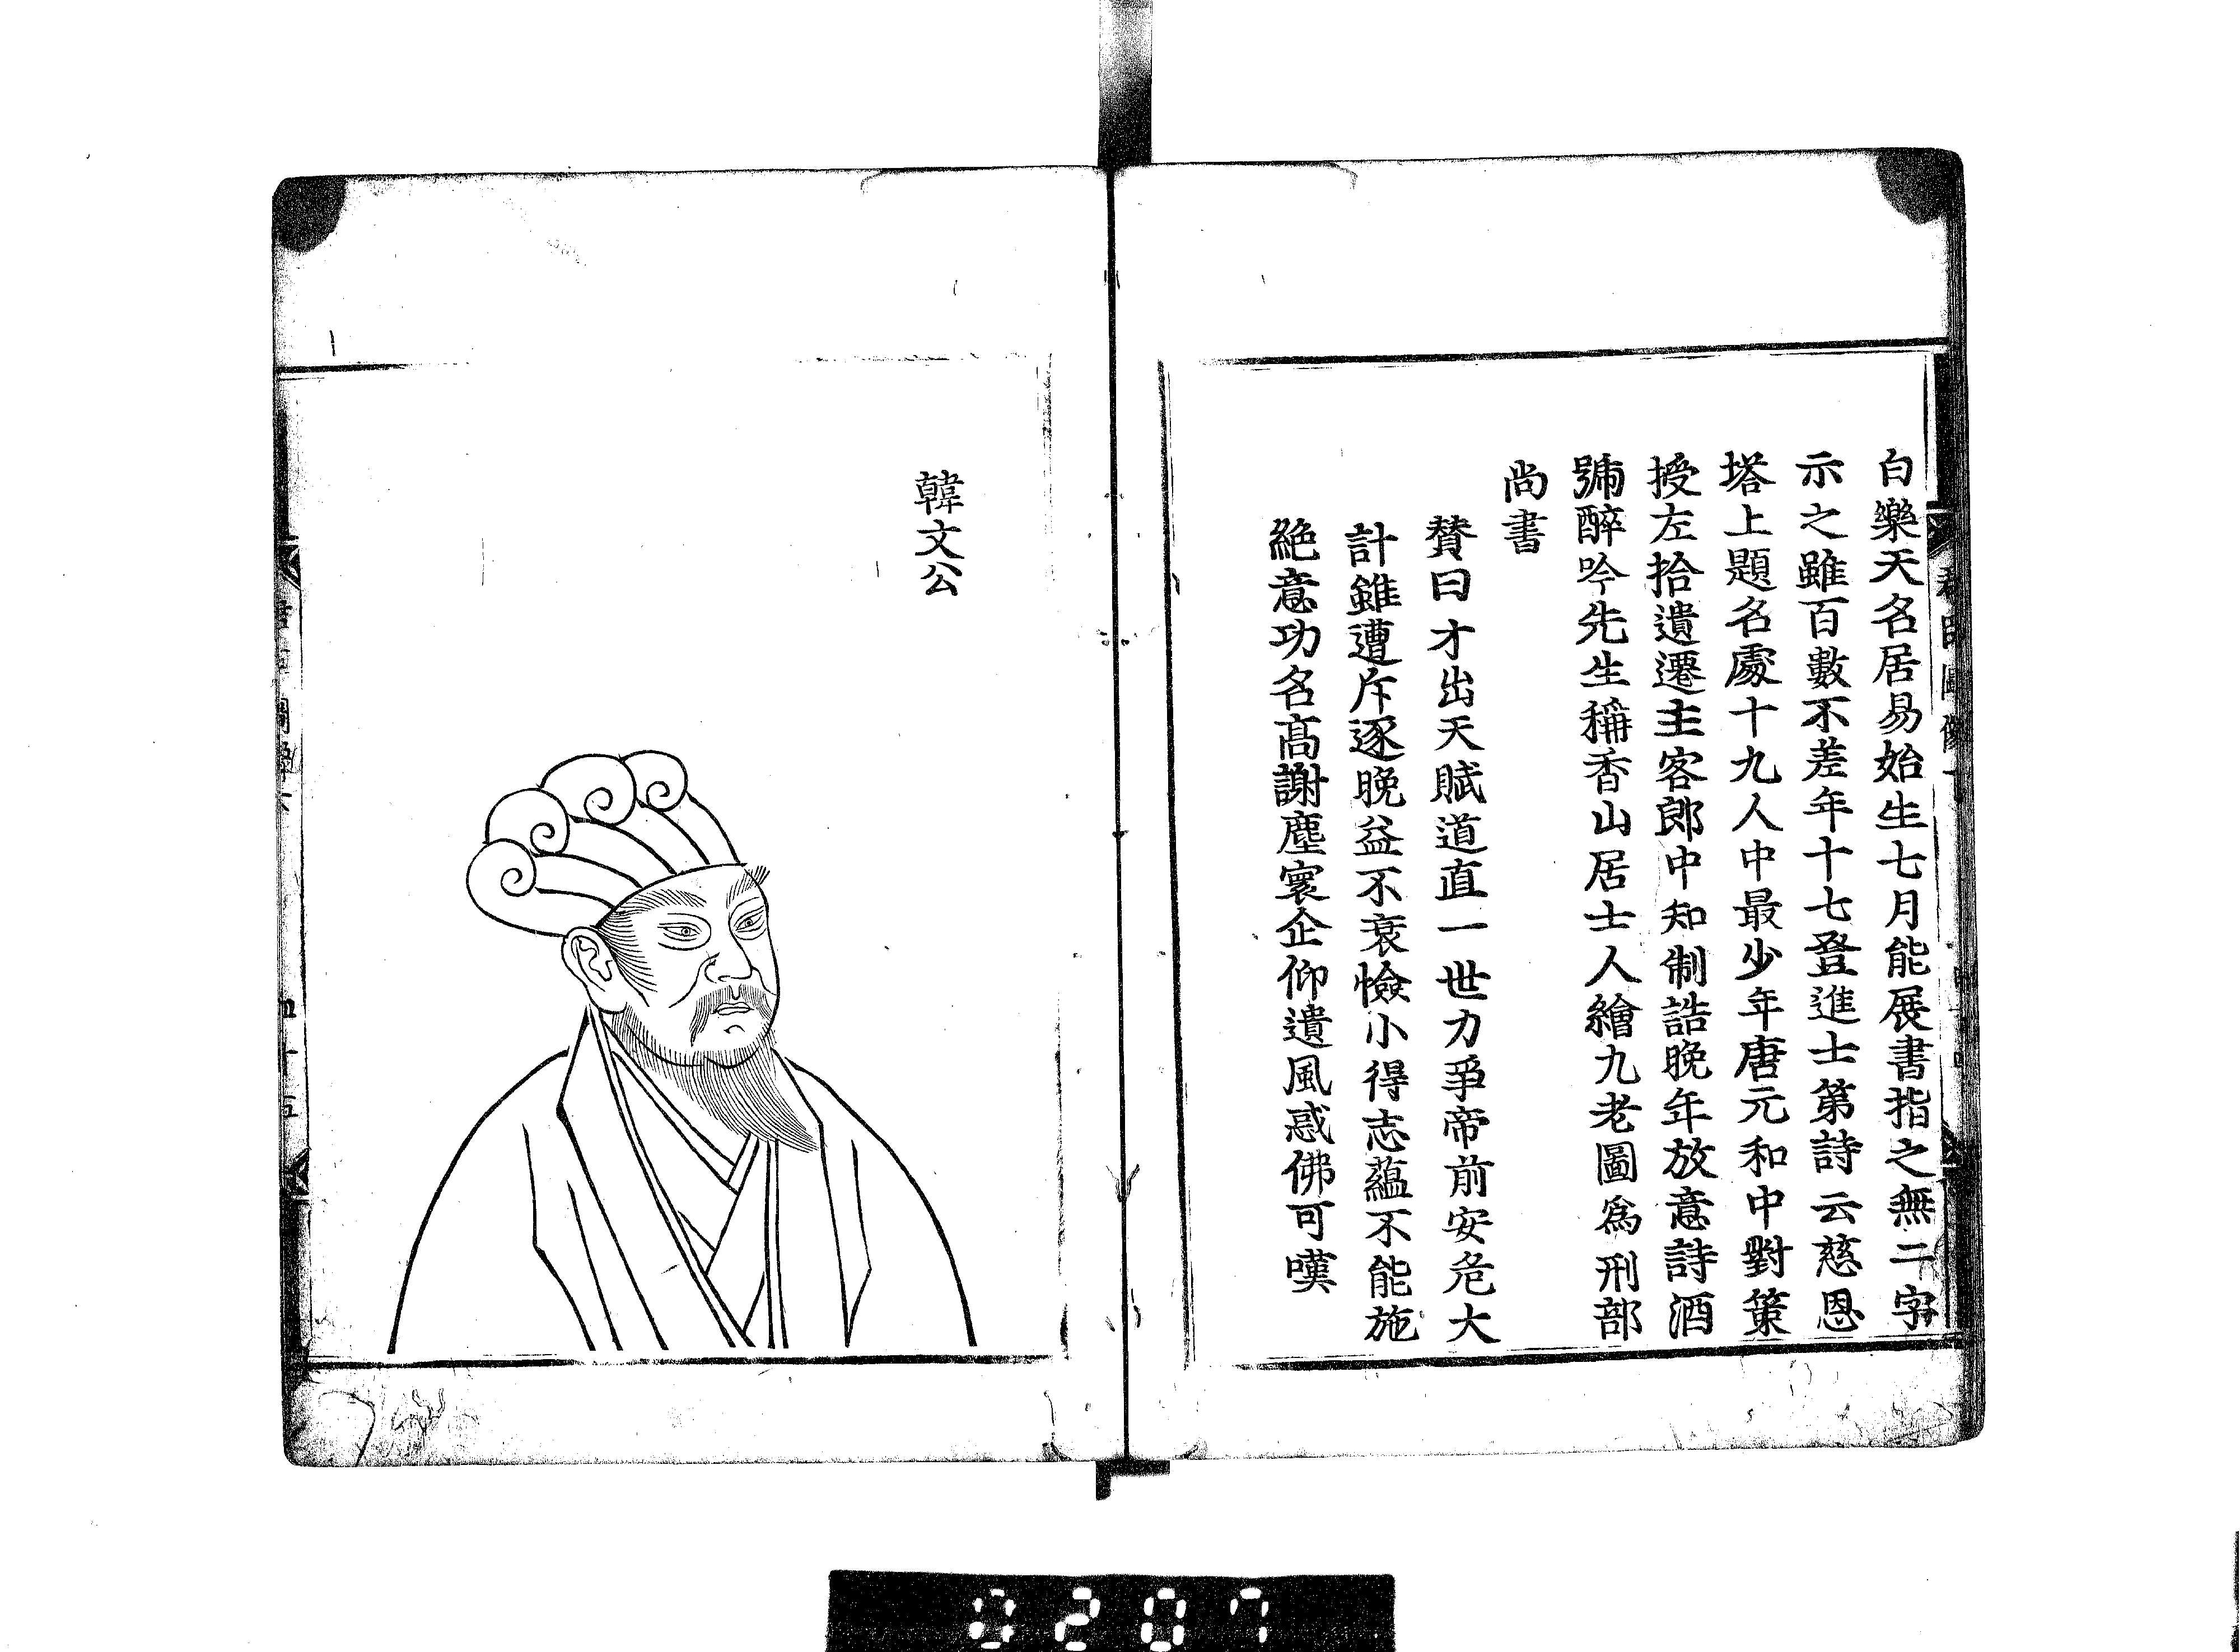 白樂天名居易始生七月能展書指之無二字
示之雖百數不差年十七登進士第詩云慈恩
塔上題名處十九人中最少年唐元和中對策
授左拾遺遷主客郎中知制誥晚年放意詩酒
號醉吟先生稱香山居士人繪九老圖爲刑部
尚書
賛曰才出天賦道直一世力爭帝前安危大
計雖遭斥逐晚益不衰憸小得志蘊不能施
絶意功名高謝塵寰企仰遺風惑佛可嘆
韓文公
0207